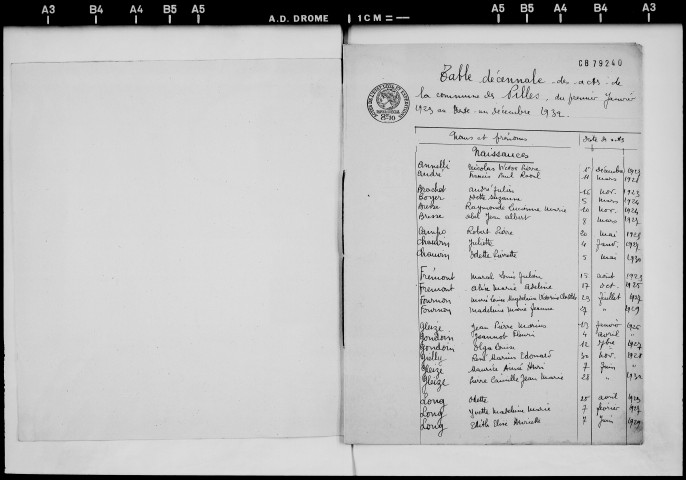 A3 B4 A4 B5 A5 A.D. DROME 1 CM = A5 B5 A4 B4 A3
CB 79240
Table décennale des actes de
la commune des Pilles, du premier Janvier
1923 au trente-un décembre 1932.
Noms et prénoms Date des actes
Naissances
Nicolas Victor Pierre 1er décembre 1923
André Francis Paul Raoul 11 mars 1928
Brachet André Julien 16 nov. 1923
Boyer Odette Suzanne 5 mars 1924
Brisse Raymonde Lucienne Marie 10 nov. 1924
Brisse Abel Jean Albert 8 mars 1927
Campo Robert Pierre 20 mai 1928
Chauvin Juliette 4 Janv. 1927
Chauvin Odette Pierrette 5 mai 1930
Frémont Marcel Louis Julien 15 août 1923
Frémont Alice Marie Adeline 17 oct. 1925
Fournon 23 Juillet 1927
Fournon Madeleine Marie Jeanne 27 " 1929
Gleize Jean Pierre Marius 23 Janvier 1926
Gondoin Jeannot Henri 4 avril "
Gondoin Olga Louise 12 1927
Paul Marius Edouard 30 nov. 1928
Gleize Maurice Aimé Henri 7 Juin "
Gleize Pierre Camille Jean Marie 28 " 1932
Long Odette 20 avril 1923
Long Yvette Madeleine Marie 7 février 1927
Long Edith Elise Henriette 7 Juin 1929